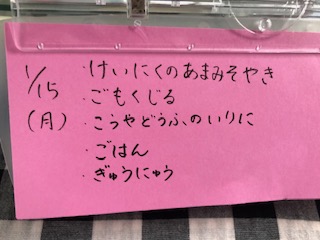 1/15
(月)
・けいにくのあまみそやき
・ごもくじる
・こうやどうふのいりに
・ごはん
・ぎゅうにゅう